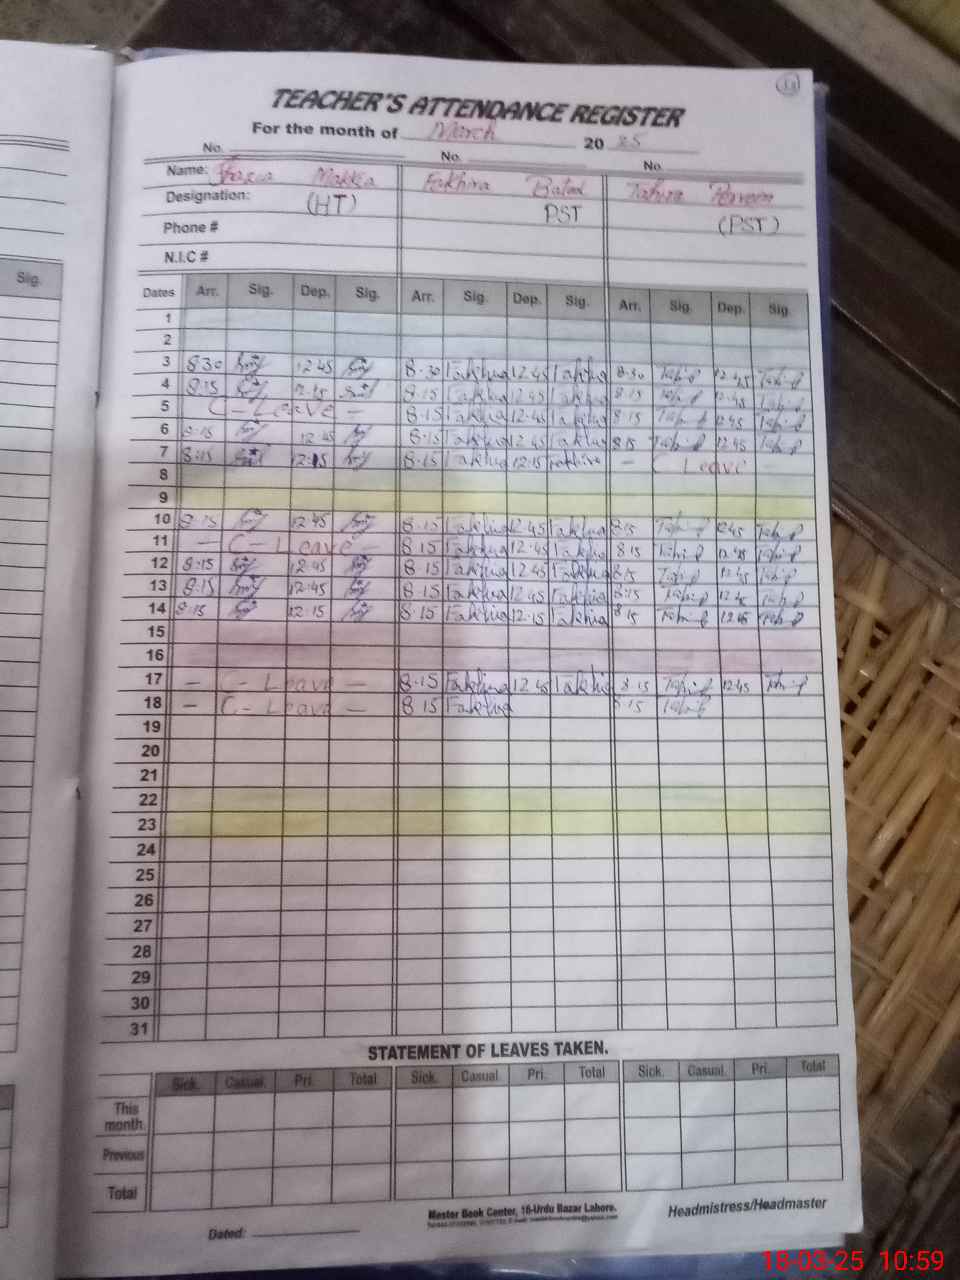 18
TEACHER'S ATTENDANCE REGISTER
For the month of March 20 25
No. No. No.
Name: Fozia Makka Fakhira Batool Tahira Parveen
Designation: (HT) PST (PST)
Phone #
N.I.C #
Sig.
Dates Arr. Sig. Dep. Sig. Arr. Sig. Dep. Sig. Arr. Sig. Dep. Sig.
1
2
3 8 30 12 45 8.30 Fakhira 12.45 Fakhira 8.30 Tahira 12.45 Tahira
4 8:15 12:45 8.15 Fakhira 12.45 Fakhira 8.15 Tahira 12.45 Tahira
5 C - Leave - 8.15 Fakhira 12.45 Fakhira 8.15 Tahira 12.45 Tahira
6 8:15 12:45 8.15 Fakhira 12.45 Fakhira 8.15 Tahira 12.45 Tahira
7 8:15 12:15 8.15 Fakhira 12.15 Fakhira - C Leave
8
9
10 8:15 12 45 8.15 Fakhira 12.45 Fakhira 8.15 Tahira 12.45 Tahira
11 - C - Leave - 8 15 Fakhira 12.45 Fakhira 8 15 Tahira 12.45 Tahira
12 8:15 12:45 8.15 Fakhira 12.45 Fakhira 8.15 Tahira 12.45 Tahira
13 8:15 12:45 8.15 Fakhira 12.45 Fakhira 8:15 Tahira 12.45 Tahira
14 8:15 12:15 8.15 Fakhira 12.15 Fakhira 8 15 Tahira 12.45 Tahira
15
16
17 - C - Leave - 8.15 Fakhira 12 45 Fakhira 8 15 Tahira 12.45 Tahira
18 - C - Leave - 8 15 Fakhira 8.15 Tahira
19
20
21
22
23
24
25
26
27
28
29
30
31
STATEMENT OF LEAVES TAKEN.
Sick. Casual. Pri. Total Sick. Casual. Pri. Total Sick. Casual. Pri. Total
This month.
Previous
Total
Dated:
Master Book Center, 16-Urdu Bazar Lahore.
Headmistress/Headmaster
18-03-25 10:59